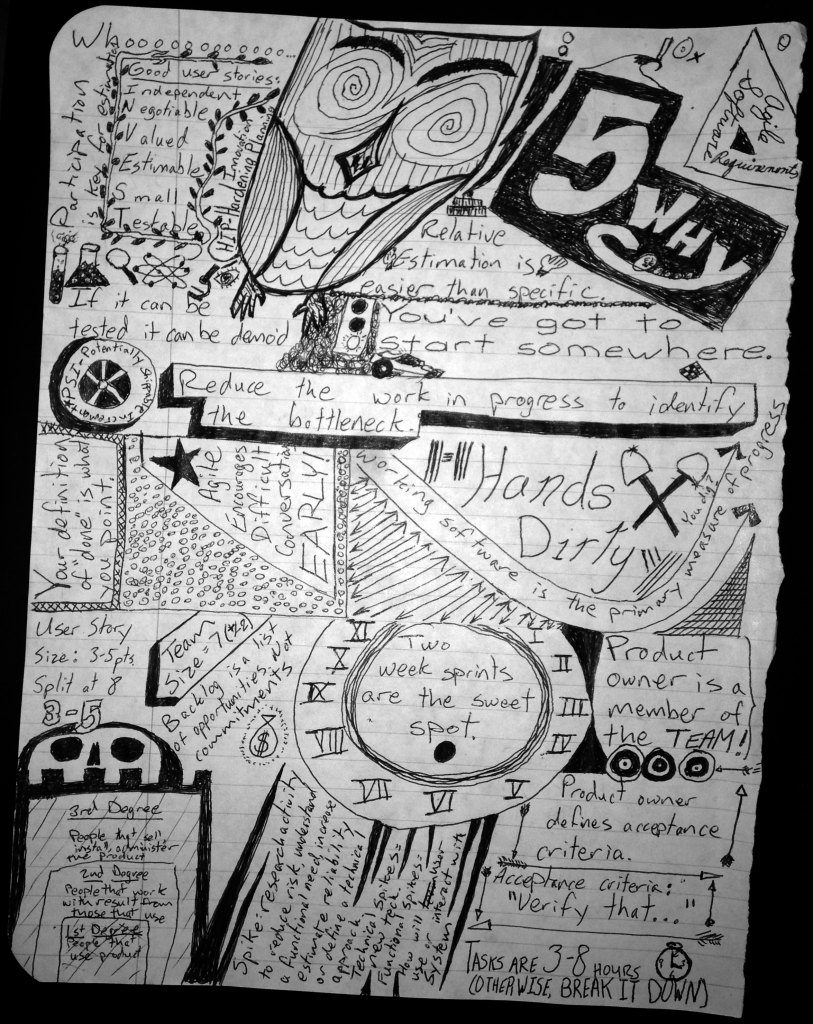 Whooooooooooo...
Good user stories:
Independent
Negotiable
Valued
Estimable
Small
Testable
Participation
is key for estimation
HIP - Hardening
Innovation
Planning
5
WHY
Agile
Software
Requirements
Relative
Estimation is
easier than specific
If it can be
tested it can be demo'd
You've got to
start somewhere.
PSI - Potentially Shippable Increment
Reduce the work in progress to identify
the bottleneck.
Your definition
of "done" is what
you point.
Agile
Encourages
Difficult
Conversation
EARLY!
Hands
Dirty
You dig?
Working software is the primary measure of progress
User Story
Size: 3-5pts
Split at 8
3-5
Team
Size = 7(+/-2)
Backlog is a list
of opportunities, not
commitments
$
XI
X
IX
VIII
VII
VI
V
IV
III
II
I
Two
week sprints
are the sweet
spot.
Product
owner is a
member of
the TEAM!
Product owner
defines acceptance
criteria.
Acceptance criteria:
"Verify that..."
3rd Degree
People that sell,
install, administer
the product
2nd Degree
People that work
with result from
those that use
1st Degree
People that
use product
Spike: research activity
to reduce risk, understand
a functional need, increase
estimate reliability
or define a technical
approach.
Technical Spikes=
new tech.
Functional Spikes=
How will user
use or interact with
system
TASKS ARE 3-8 HOURS
(OTHERWISE, BREAK IT DOWN)